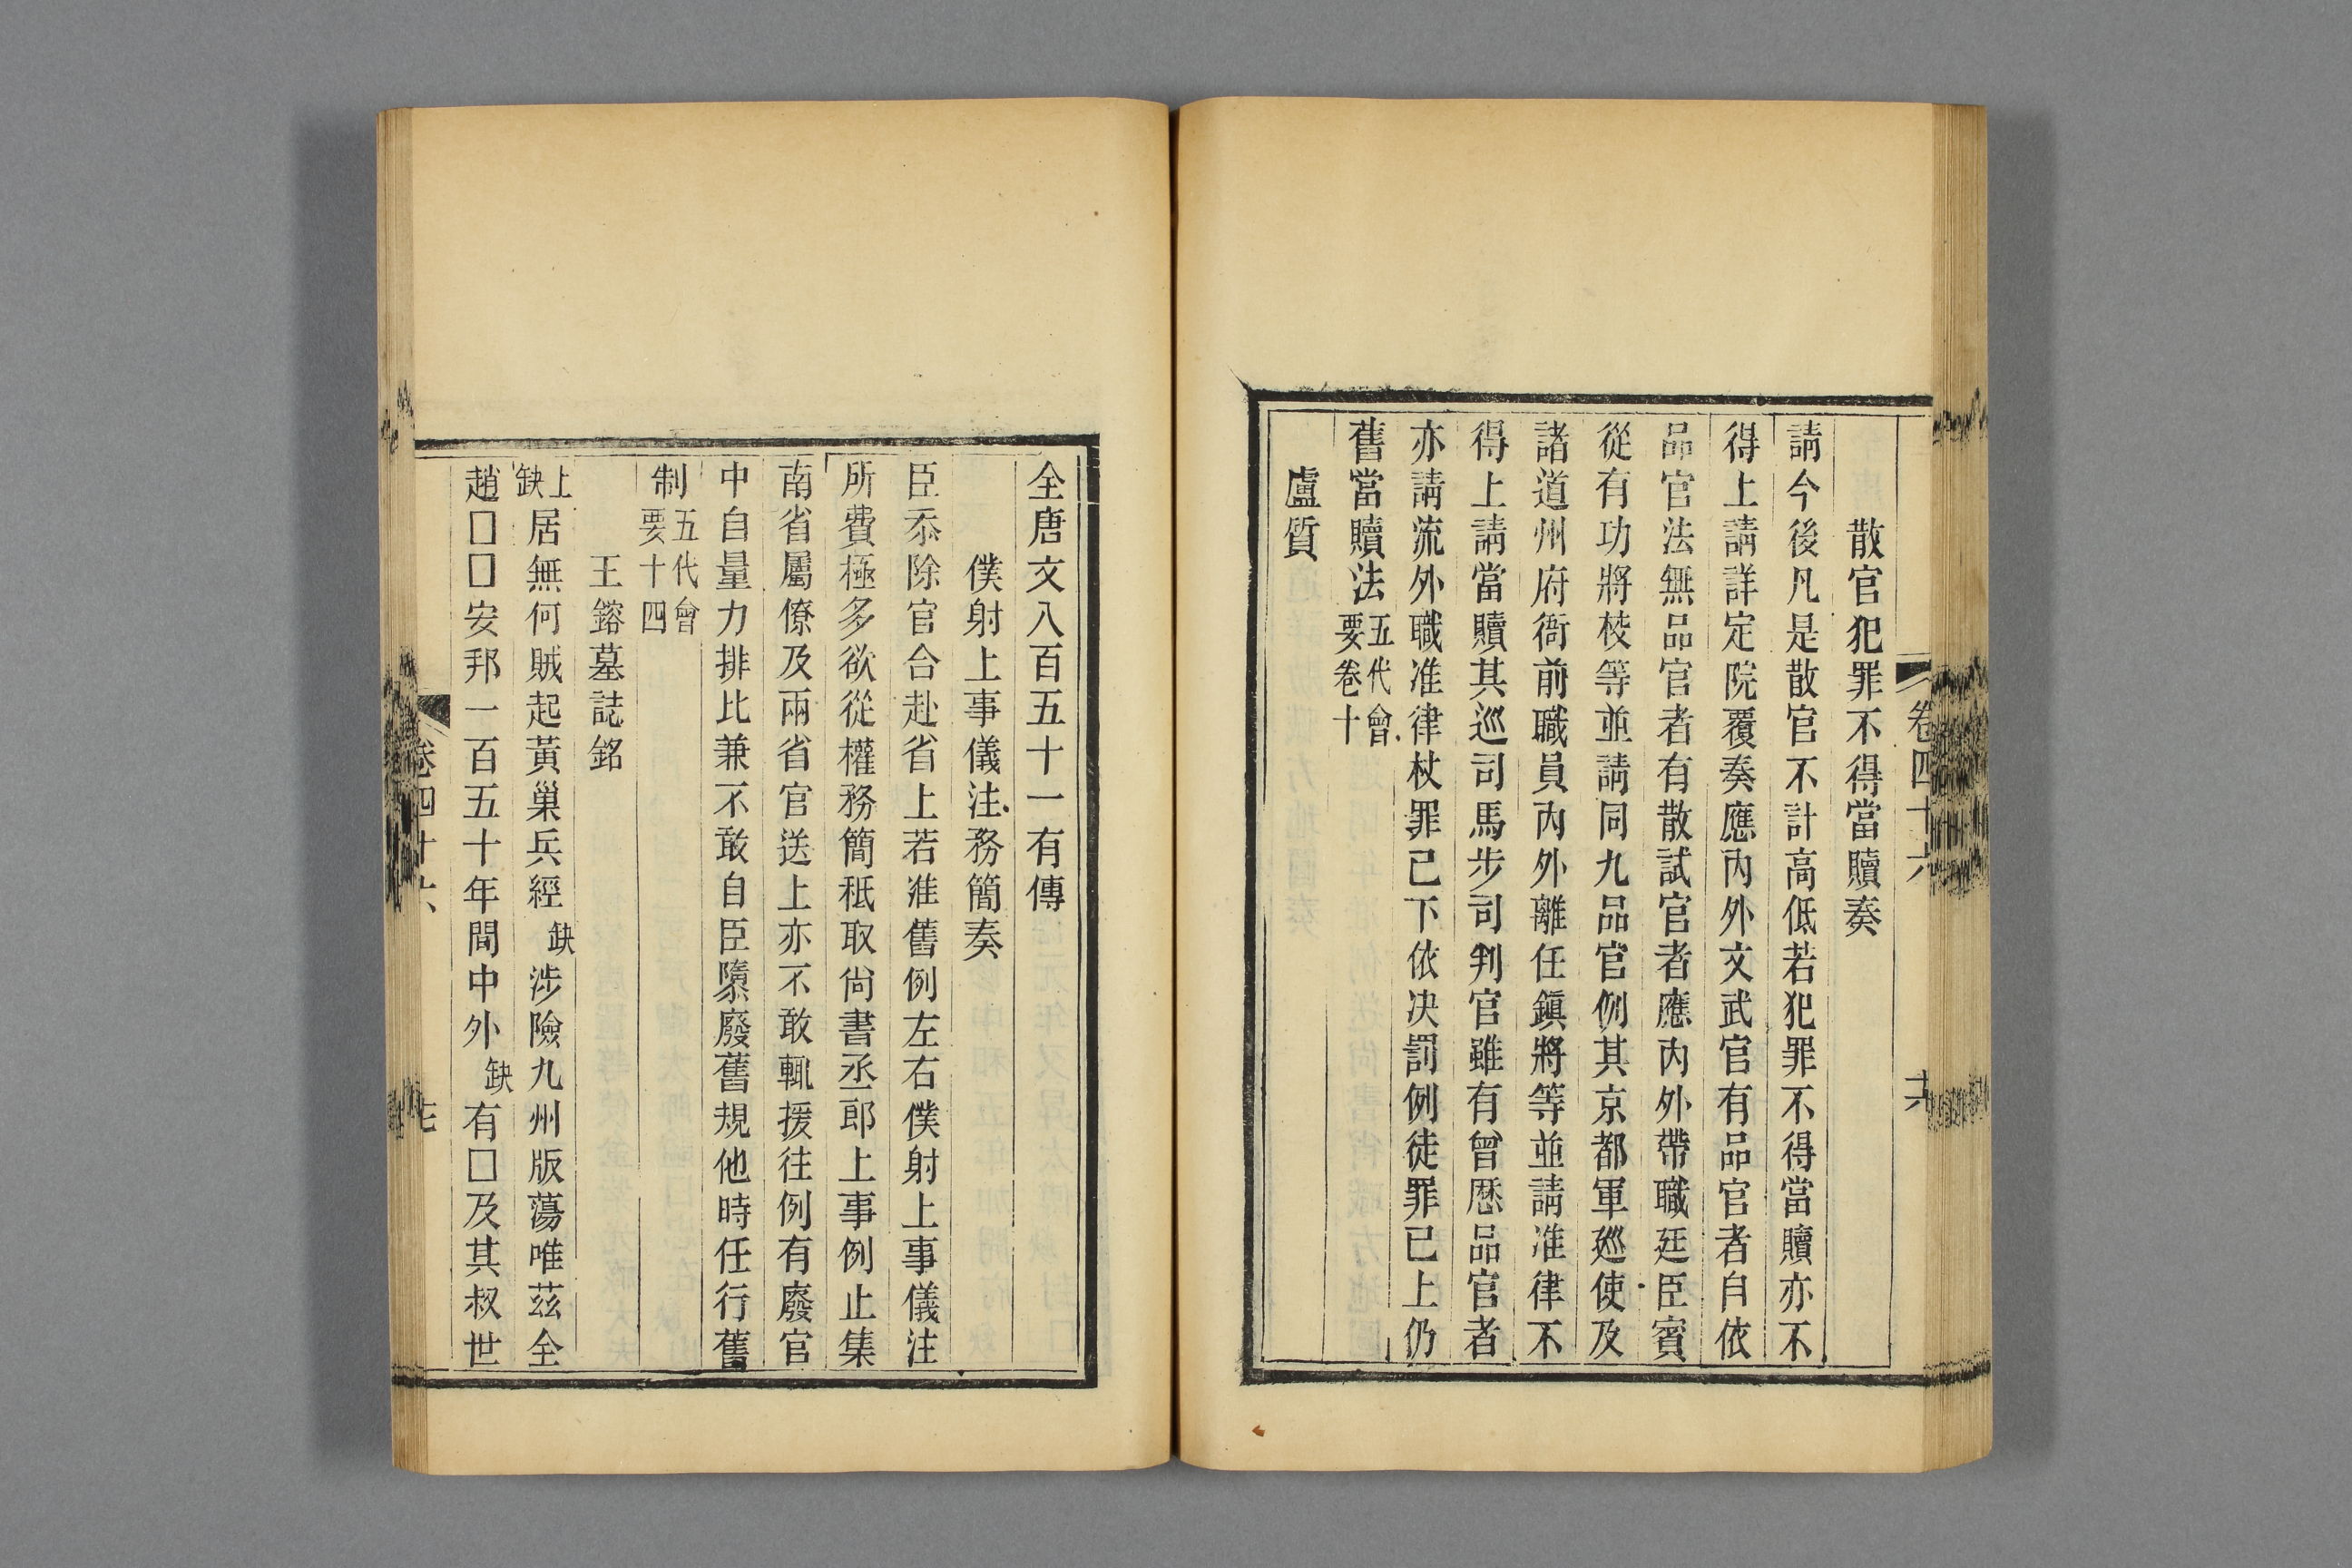 卷四十六
十六
散官犯罪不得當贖奏
請今後凡是散官不計高低若犯罪不得當贖亦不
得上請詳定院覆奏應內外文武官有品官者自依
品官法無品官者有散試官者應內外帶職廷臣賓
從有功將校等並請同九品官例其京都軍廵使及
諸道州府衙前職員內外離任鎭將等並請准律不
得上請當贖其巡司馬步司判官雖有曾歷品官者
亦請流外職准律杖罪已下依决罰例徒罪已上仍
舊當贖法五代會要卷十
盧質
全唐文八百五十一有傳
僕射上事儀注務簡奏
臣忝除官合赴省上若准舊例左右僕射上事儀注
所費極多欲從權務簡秖取尙書丞郎上事例止集
南省屬僚及兩省官送上亦不敢輒援往例有廢官
中自量力排比兼不敢自臣隳廢舊規他時任行舊
制五代會要十四
王鎔墓誌銘
上缺居無何賊起黃巢兵經缺涉險九州版蕩唯茲全
趙□□安邦一百五十年間中外缺有□及其叔世
卷四十六
十七